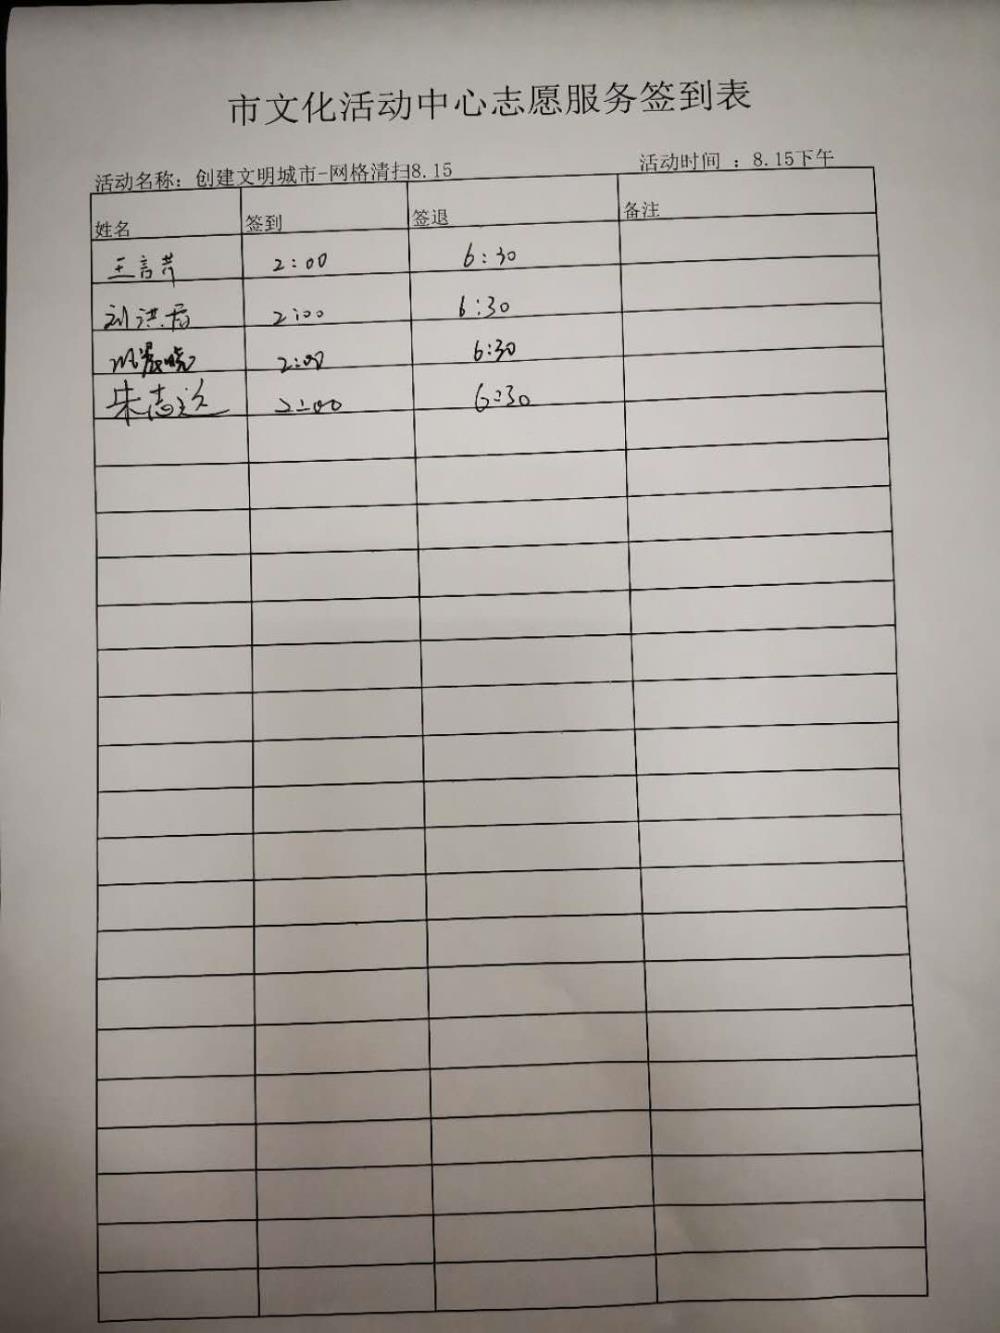 市文化活动中心志愿服务签到表
活动名称：创建文明城市-网格清扫8.15 活动时间 ：8.15下午
姓名 签到 签退 备注
王言芹 2:00 6:30
刘洪 2:00 6:30
晓 2:00 6:30
朱志 2:00 6:30